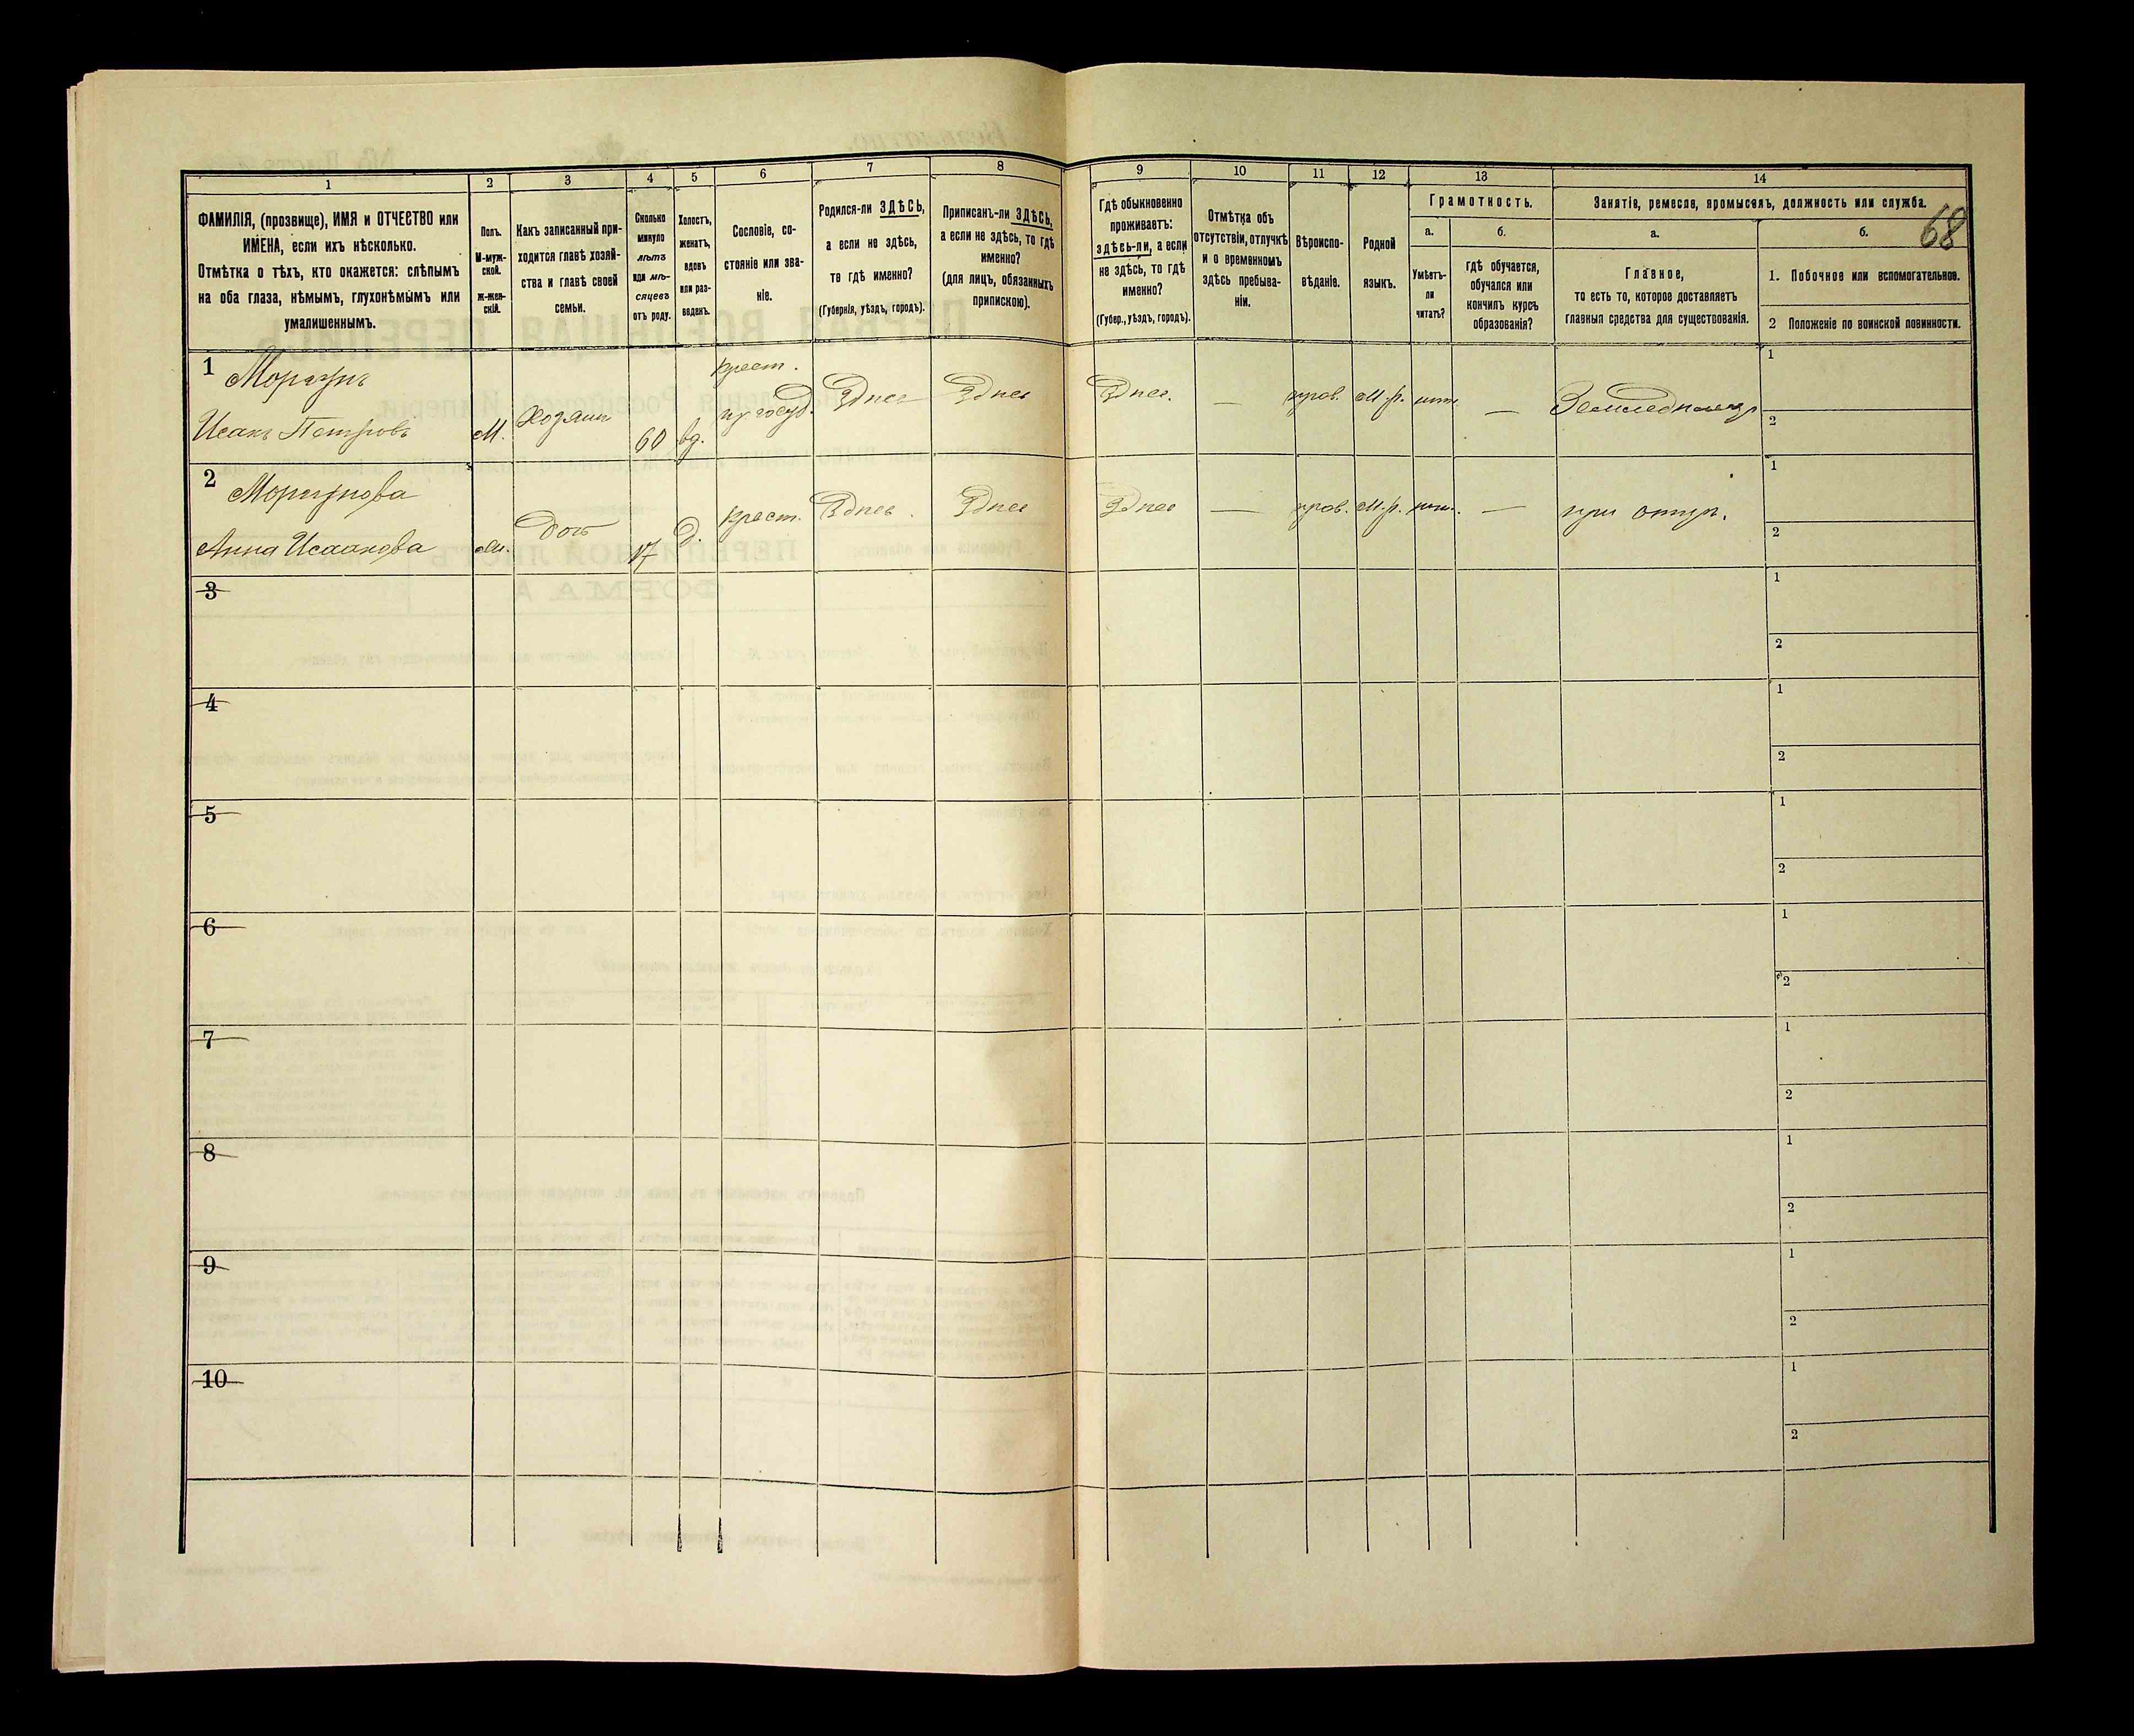 68
1
2
3
4
5
6
7
8
9
10
11
12
13
14
ФАМИЛІЯ, (прозвище), ИМЯ и ОТЧЕСТВО или
ИМЕНА, если ихъ нѣсколько.
Отмѣтка о тѣхъ, кто окажется: слѣпымъ
на оба глаза, нѣмымъ, глухонѣмымъ или
умалишеннымъ.
Полъ.
М-муж-
ской.
ж-жен-
скій.
Какъ записанный при-
ходится главѣ хозяй-
ства и главѣ своей
семьи.
Сколько
минуло
лѣтъ
или мѣ-
сяцевъ
отъ роду.
Холостъ,
женатъ,
вдовъ
или раз-
веденъ.
Сословіе, со-
стояніе или зва-
ніе.
Родился-ли ЗДѢСЬ,
а если не здѣсь,
то гдѣ именно?
(Губернія, уѣздъ, городъ).
Приписанъ-ли ЗДѢСЬ,
а если не здѣсь, то гдѣ
именно?
(для лицъ, обязанныхъ
припискою).
Гдѣ обыкновенно
проживаетъ:
здѣсь-ли, а если
не здѣсь, то гдѣ
именно?
(Губер., уѣздъ, городъ).
Отмѣтка объ
отсутствіи, отлучкѣ
и о временномъ
здѣсь пребыва-
ніи.
Вѣроиспо-
вѣданіе.
Родной
языкъ.
Грамотность.
а.
Умѣетъ-
ли
читать?
б.
гдѣ обучается,
обучался или
кончилъ курсъ
образованія?
Занятіе, ремесло, промыселъ, должность или служба.
а.
Главное,
то есть то, которое доставляетъ
главныя средства для существованія.
б.
1. Побочное или вспомогательное.
2 Положеніе по воинской повинности.
1
Исакъ Петровъ
М.
Хозяинъ
60
вд.
крест.
Здѣсь
Здѣсь
Здѣсь.
—
прав.
М.р.
—
1
2
2
Анна Исаакова
Дочь
17
д.
крест.
Здѣсь.
Здѣсь
Здѣсь
—
прав.
М.р.
—
при отцѣ.
1
2
3
1
2
4
1
2
5
1
2
6
1
2
7
1
2
8
1
2
9
1
2
10
1
2